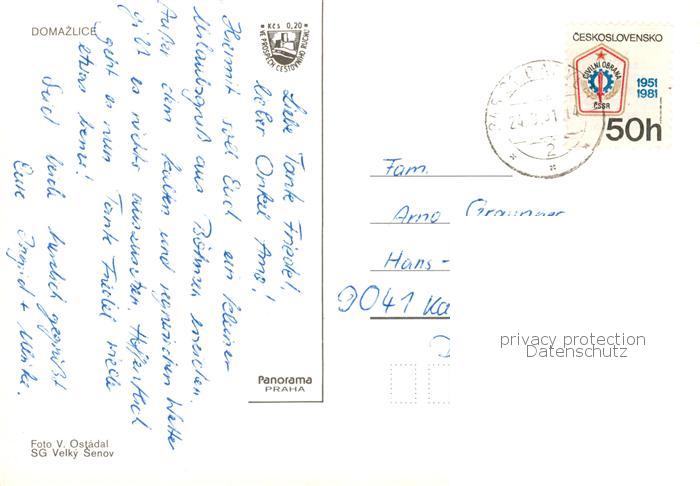 DOMAŽLICE
Liebe Tante Friedel,
lieber Onkel Arno!
Hiermit soll Euch ein kleiner
Urlaubsgruß aus Böhmen erreichen.
Außer dem kalten und regnerischen Wetter
gibt es nichts auszusetzen. Hoffentlich
geht es nun Tante Friedel wieder
etwas besser!
Seid lieb herzlich gegrüßt
Eure Ingrid + Ulrike.
Kčs 0,20
VE PROSPĚCH CESTOVNÍHO RUCHU
ČESKOSLOVENSKO
CIVILNÍ OBRANA
ČSSR
1951
1981
50h
2
Fam.
Arno
Hans-
9041 Ka
privacy protection
Datenschutz
Panorama
PRAHA
Foto V. Ostádal
SG Velký Šenov